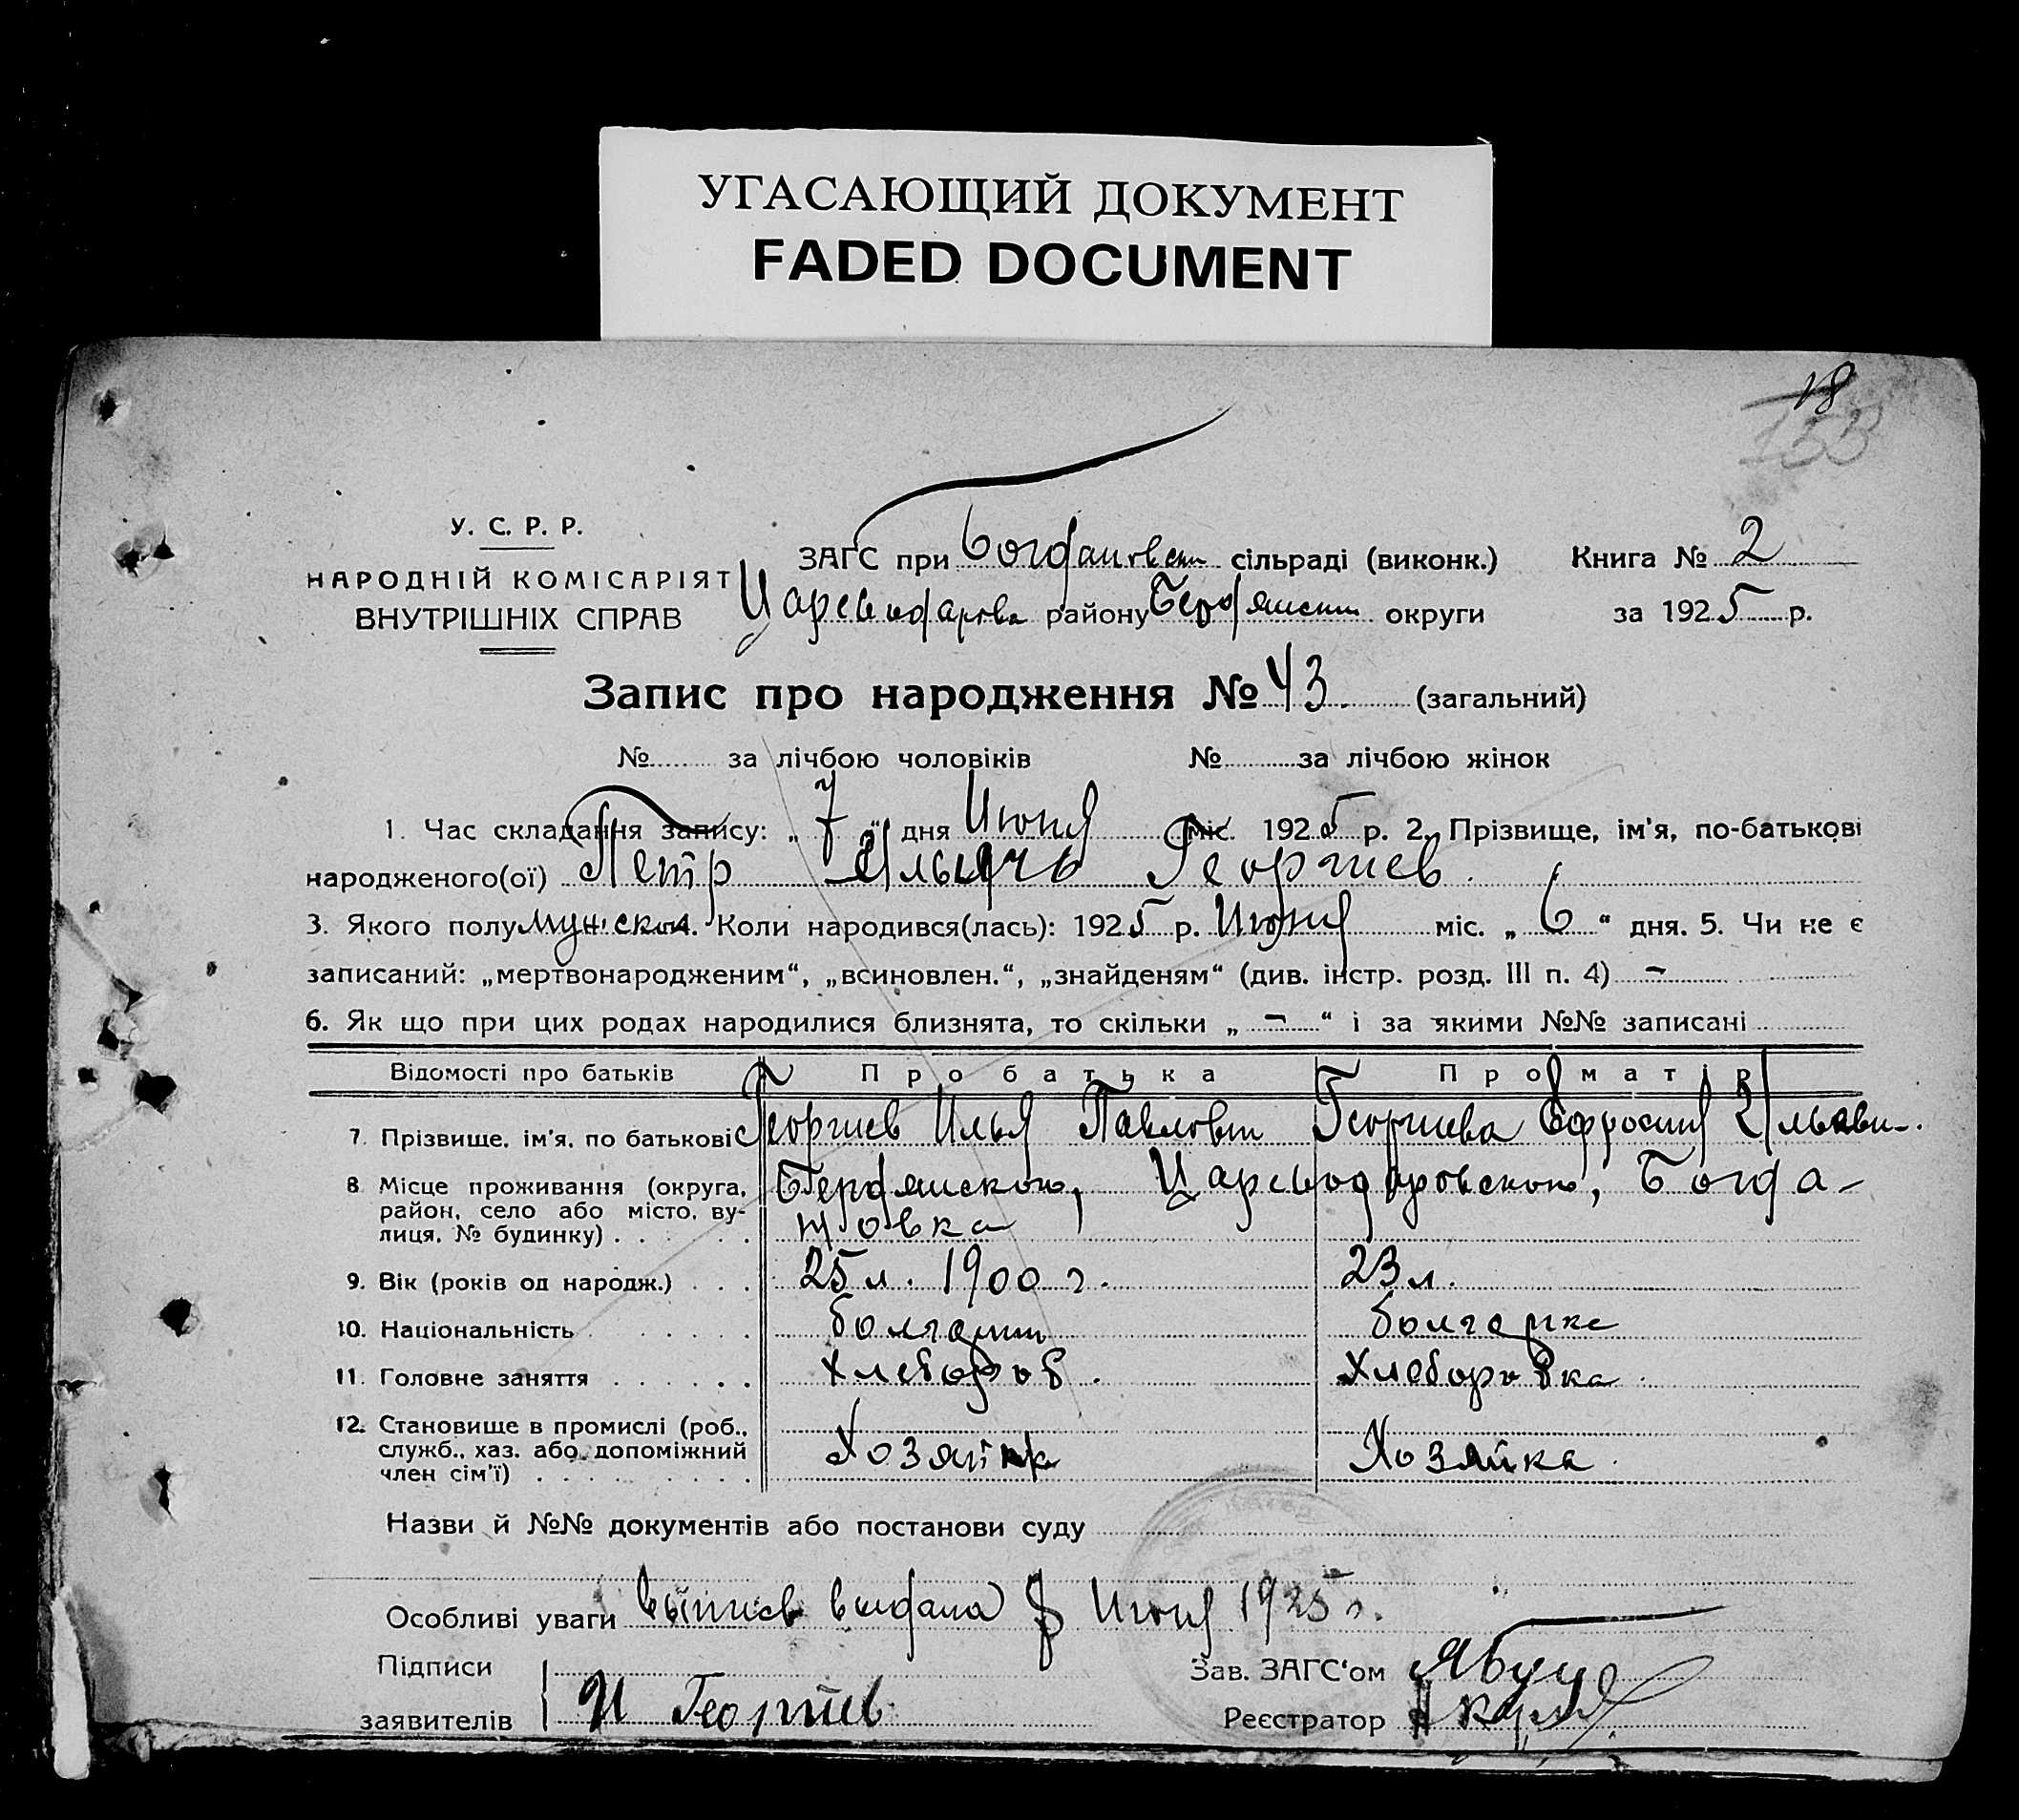 УГАСАЮЩИЙ ДОКУМЕНТ
FADED DOCUMENT
18
У. С. Р. Р.
НАРОДНІЙ КОМІСАРІЯТ
ВНУТРІШНІХ СПРАВ
ЗАГС при Богдановск сільраді (виконк.) Книга № 2
Цареводарова району Бердянск округи за 1925 р.
Запис про народження № 43. (загальний)
№ за лічбою чоловіків № за лічбою жінок
1. Час складання запису: „ 7 “ дня Июня міс. 1925 р. 2. Прізвище, ім'я, по-батькові
народженого(ої) Петр Ильичь Георгиев.
3. Якого полу мужеска. Коли народився(лась): 1925 р. Июня міс. „ 6 “ дня. 5. Чи не є
записаний: „мертвонародженим“, „всиновлен.“, „знайденям“ (див. інстр. розд. III п. 4) –
6. Як що при цих родах народилися близнята, то скільки „ – “ і за якими №№ записані
Відомості про батьків Про батька Про матір
7. Прізвище, ім'я, по батькові Георгиев Илья Павлович Георгиева Ефросиня
8. Місце проживання (округа, район, село або місто, вулиця, № будинку) Бердянского, Цареводаровского, Богда-
новка
9. Вік (років од народж.) 25 л. 1900 г. 23 л.
10. Національність болгарин болгарка
11. Головне заняття Хлебороб. Хлеборобка
12. Становище в промислі (роб., служб., хаз. або допоміжний член сім'ї) Хозяин Хозяйка
Назви й №№ документів або постанови суду
Особливі уваги Выпись выдана 8 Июня 1925 г.
Підписи Зав. ЗАГС'ом
заявителів И Георгиев Реєстратор